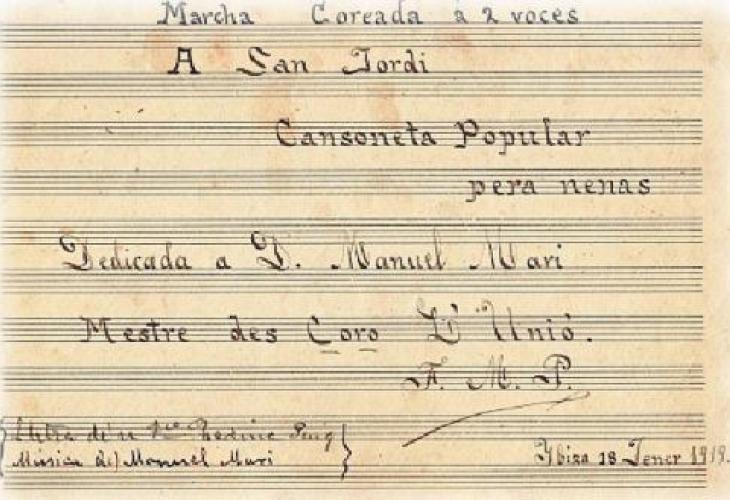 Marcha Coreada à 2 voces
A San Jordi
Cansoneta Popular
pera nenas
Dedicada a D. Manuel Mari
Mestre des Coro L'Unió.
F. M. P.
Música de) Manuel Mari
Ybiza 18 Jener 1919.